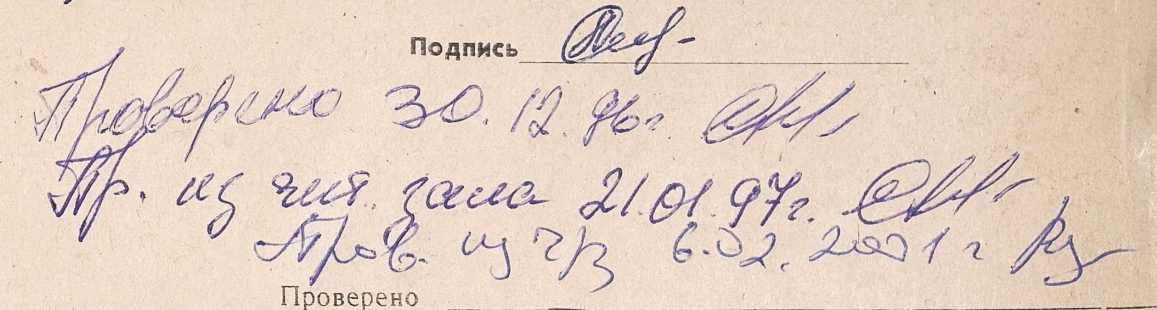 Подпись
Проверено 30.12.96г.
Пр. из чит. зала 21.01.97г.
Пров. из ч/з 6.02.2001 г
Проверено